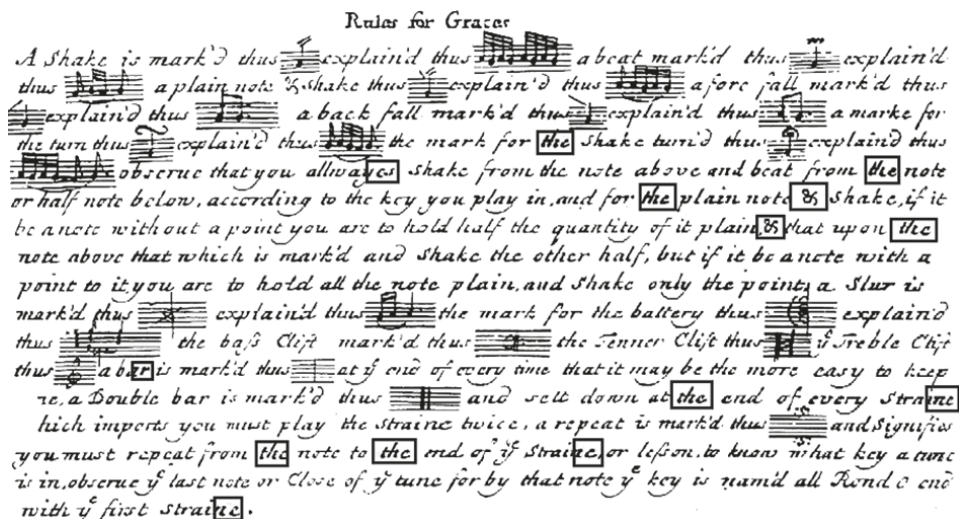 Rules for Graces
A Shake is mark'd thus explain'd thus a beat mark'd thus explain'd
thus a plain note & shake thus explain'd thus a fore fall mark'd thus
explain'd thus a back fall mark'd thus explain'd thus a marke for
the turn thus explain'd thus the mark for the Shake turn'd thus explain'd thus
observe that you allwayes shake from the note above and beat from the note
or half note below, according to the key you play in, and for the plain note & shake, if it
be a note without a point you are to hold half the quantity of it plain, & that upon the
note above that which is mark'd and shake the other half, but if it be a note with a
point to it you are to hold all the note plain, and shake only the point, a Slur is
mark'd thus explain'd thus the mark for the battery thus explain'd
thus the baſs Clift mark'd thus the Tenner Clift thus yͤ Treble Clift
thus a bar is mark'd thus at yͤ end of every time that it may be the more easy to keep
re, a Double bar is mark'd thus and sett down at the end of every Straine
hich imports you must play the straine twice, a repeat is mark'd thus and Signifies
you must repeat from the note to the end of yͤ Straine, or leſson, to know what key a tune
is in, observe yͤ last note or Close of yͤ tune for by that note yͤ key is nam'd all Rond end
with yͤ first Straine.